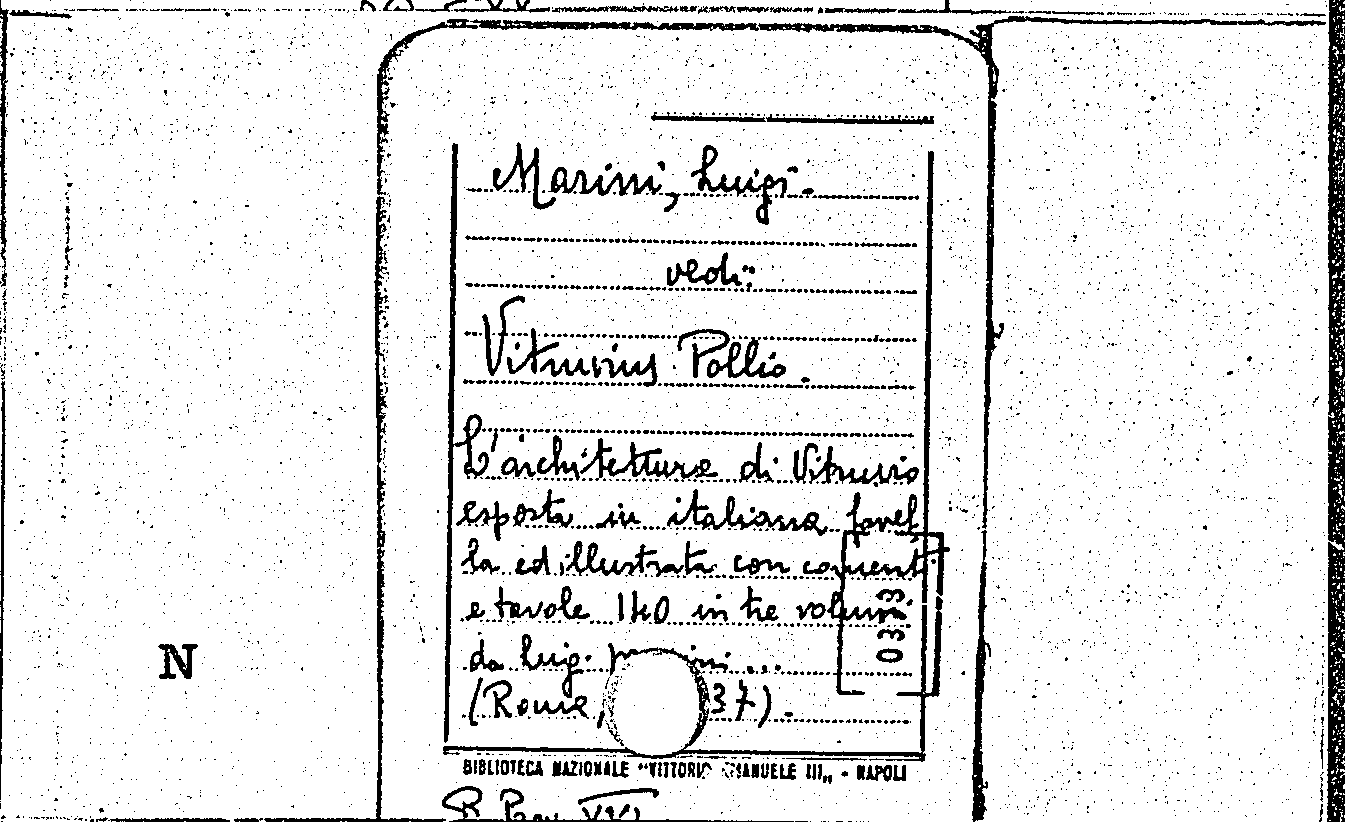 Marini, Luigi.
vedi:
Vitruvius Pollio.
L'architettura di Vitruvio
esposta in italiana favel
la ed illustrata con comenti
e tavole 140 in tre volumi
da Luigi Marini ...
(Roma, 37).
0373
N
BIBLIOTECA NAZIONALE "VITTORIO EMANUELE III„ - NAPOLI